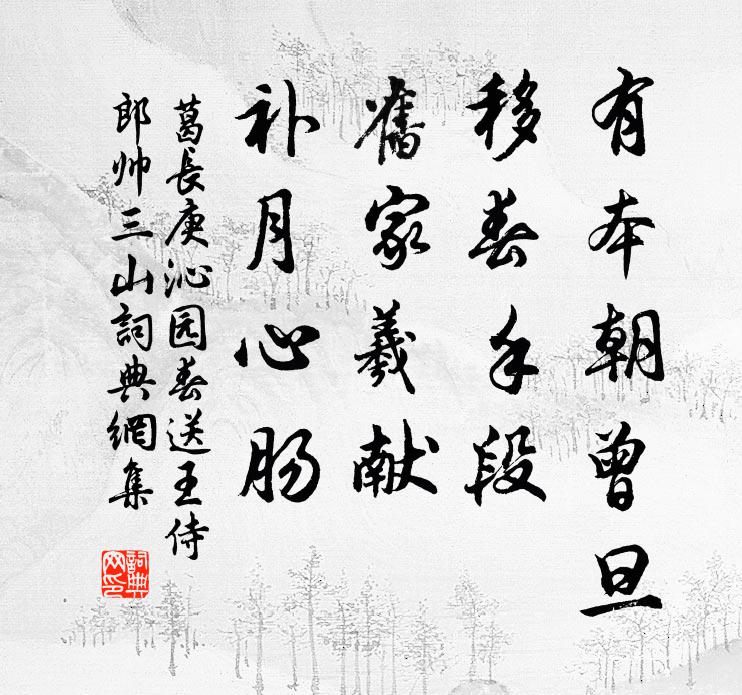 有本朝曾旦
移春手段
舊家羲献
补月心肠
葛長庚沁园春送王侍
郎帅三山詞典網集
詞典网印